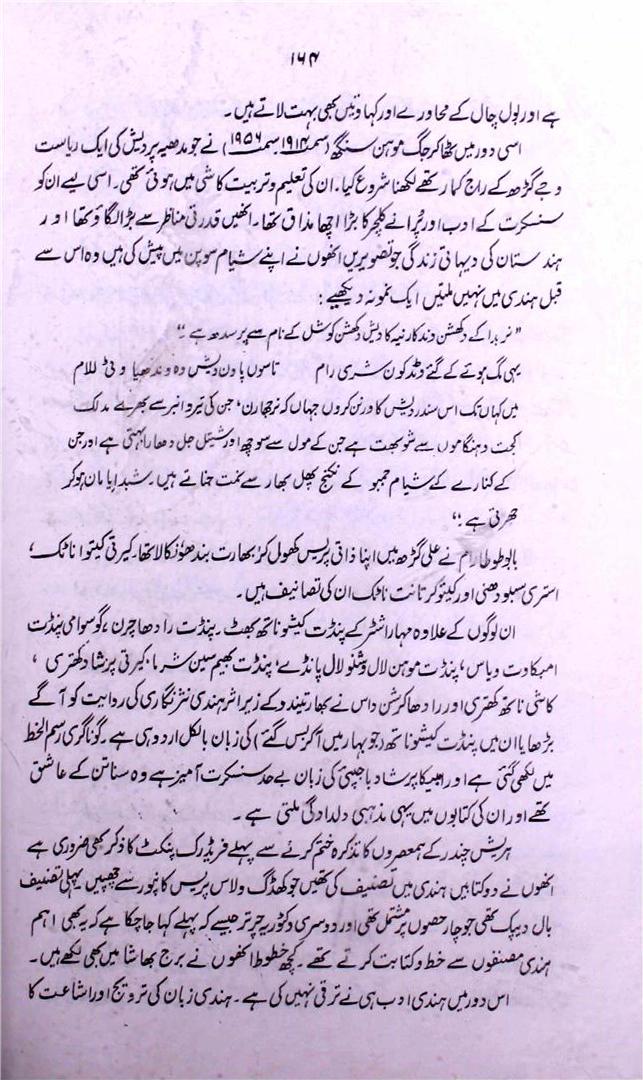 ۱۶۴
ہے اور بول چال کے محاورے اور کہاوتیں بھی بہت لاتے ہیں۔
اسی دور میں ٹھاکر جگ موہن سنگھ (سمہ ۱۹۱۴ سمت ۱۹۵۶) نے جو مدھیہ پردیش کی ایک ریاست
وجے گڑھ کے راج کمار تھے لکھنا شروع کیا۔ ان کی تعلیم و تربیت کاشی میں ہوئی تھی۔ اسی لیے ان کو
سنسکرت کے ادب اور پُرانے کلچر کا بڑا اچھا مذاق تھا۔ انھیں قدرتی مناظر سے بڑا لگاؤ تھا اور
ہندستان کی دیہاتی زندگی جو تصویریں انھوں نے اپنے شیام سوپن میں پیش کی ہیں وہ اس سے
قبل ہندی میں نہیں ملتیں ایک نمونہ دیکھیے:
”نربدا کے دکھشن دنڈکارنیہ کا دیش دکھشن کوشل کے نام سے پرسدھ ہے۔“
یہی مگ ہوئے کے گئے دنڈکون شری رام تاسوں پاون دیش وہ وندھیا
میں کہاں تک اس سندر دیش کا ورنن کروں جہاں کہ نرجھارن، جن کی تیر وانیر سے بھرے
سے شوبھت ہے جن کے مول سے سوچھ اور شیتل جل دھارا بہتی ہے اور جن
کے کنارے کے شیام جمبو کے نکنج پھل بھار سے نمت جناتے ہیں۔ شبدایامان ہو کر
جھرتی ہے۔“
بابو طوطا رام نے علی گڑھ میں اپنا ذاتی پریس کھول کر بھارت بندھو نکالا تھا۔ کیرتی کیتو اناٹک،
استری سبودھنی اور کیٹو کرتانت ناٹک ان کی تصانیف ہیں۔
ان لوگوں کے علاوہ مہاراشٹر کے پنڈت کیشو ناتھ بھٹ۔ پنڈت رادھا چرن، گوسوامی پنڈت
امبکادت ویاس، پنڈت موہن لال وشنو لال پانڈے، پنڈت بھیم سین شرما، کیرتی پرشاد کھتری،
کاشی ناتھ کھتری اور رادھا کرشن داس نے بھارتیندو کے زیر اثر ہندی نثر نگاری کی روایت کو آگے
بڑھایا ان میں پنڈت کیشو ناتھ (جو بہار میں آکر بس گئے) کی زبان بالکل اردو ہی ہے۔ گو ناگری رسم الخط
میں لکھی گئی ہے اور امبیکا پرشاد باجپئی کی زبان بے حد سنسکرت آمیز ہے وہ سناتن کے عاشق
تھے اور ان کی کتابوں میں یہی مذہبی دلدادگی ملتی ہے۔
ہریش چندر کے ہمعصروں کا تذکرہ ختم کرنے سے پہلے فریڈرک پنکٹ کا ذکر بھی ضروری ہے
انھوں نے دو کتابیں ہندی میں تصنیف کی تھیں جو کھڈگ ولاس پریس کانپور سے چھپیں پہلی تصنیف
بال دیپک تھی جو چار حصوں پر مشتمل تھی اور دوسری وکٹوریہ چرتر جیسے کہ پہلے کہا جا چکا ہے کہ یہ بھی اہم
ہندی مصنفوں سے خط و کتابت کرتے تھے۔ کچھ خطوط انھوں نے برج بھاشا میں بھی لکھے ہیں۔
اس دور میں ہندی ادب ہی نے ترقی نہیں کی ہے۔ ہندی زبان کی ترویج اور اشاعت کا